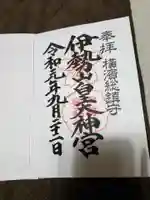 奉拝 横濱総鎮守
伊勢山皇大神宮
令和元年九月二十一日